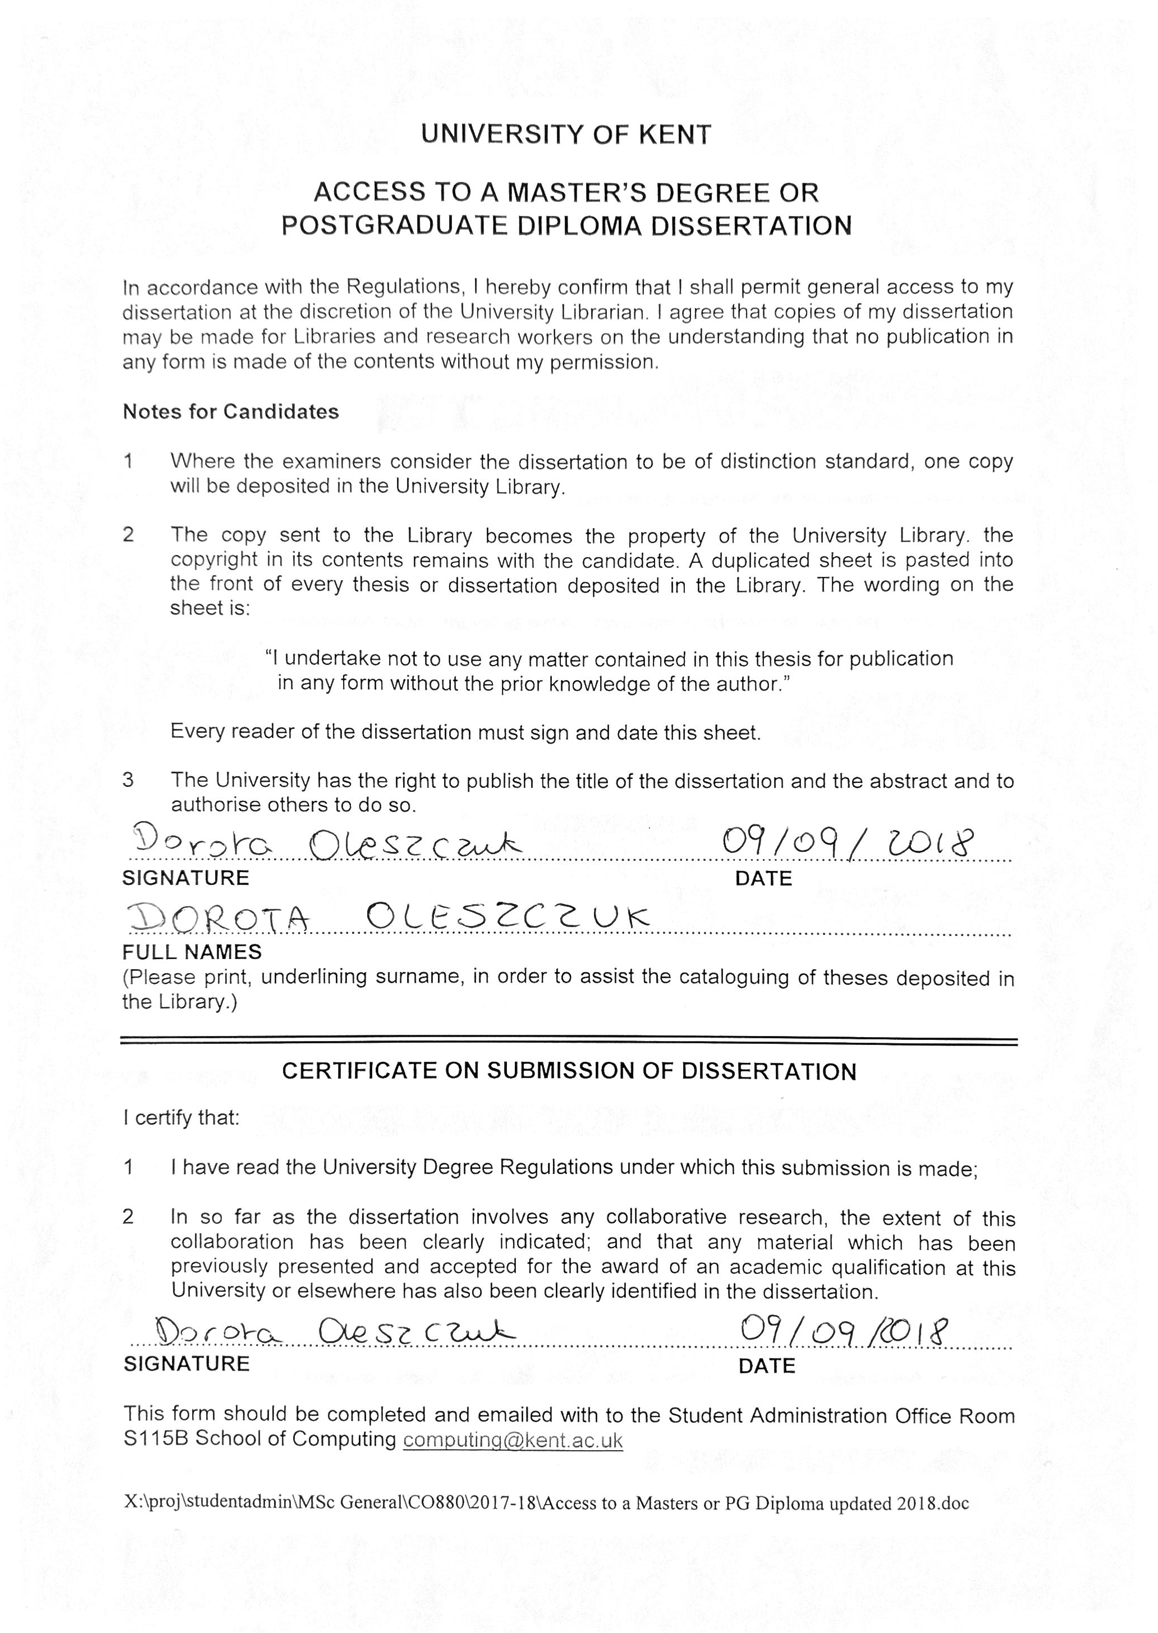 UNIVERSITY OF KENT
ACCESS TO A MASTER'S DEGREE OR
POSTGRADUATE DIPLOMA DISSERTATION
In accordance with the Regulations, I hereby confirm that I shall permit general access to my
dissertation at the discretion of the University Librarian. I agree that copies of my dissertation
may be made for Libraries and research workers on the understanding that no publication in
any form is made of the contents without my permission.
Notes for Candidates
1 Where the examiners consider the dissertation to be of distinction standard, one copy
will be deposited in the University Library.
2 The copy sent to the Library becomes the property of the University Library. the
copyright in its contents remains with the candidate. A duplicated sheet is pasted into
the front of every thesis or dissertation deposited in the Library. The wording on the
sheet is:
“I undertake not to use any matter contained in this thesis for publication
in any form without the prior knowledge of the author.”
Every reader of the dissertation must sign and date this sheet.
3 The University has the right to publish the title of the dissertation and the abstract and to
authorise others to do so.
Dorota Oleszczuk 09/09/2018
SIGNATURE DATE
DOROTA OLESZCZUK
FULL NAMES
(Please print, underlining surname, in order to assist the cataloguing of theses deposited in
the Library.)
CERTIFICATE ON SUBMISSION OF DISSERTATION
I certify that:
1 I have read the University Degree Regulations under which this submission is made;
2 In so far as the dissertation involves any collaborative research, the extent of this
collaboration has been clearly indicated; and that any material which has been
previously presented and accepted for the award of an academic qualification at this
University or elsewhere has also been clearly identified in the dissertation.
Dorota Oleszczuk 09/09/2018
SIGNATURE DATE
This form should be completed and emailed with to the Student Administration Office Room
S115B School of Computing computing@kent.ac.uk
X:\proj\studentadmin\MSc General\CO880\2017-18\Access to a Masters or PG Diploma updated 2018.doc